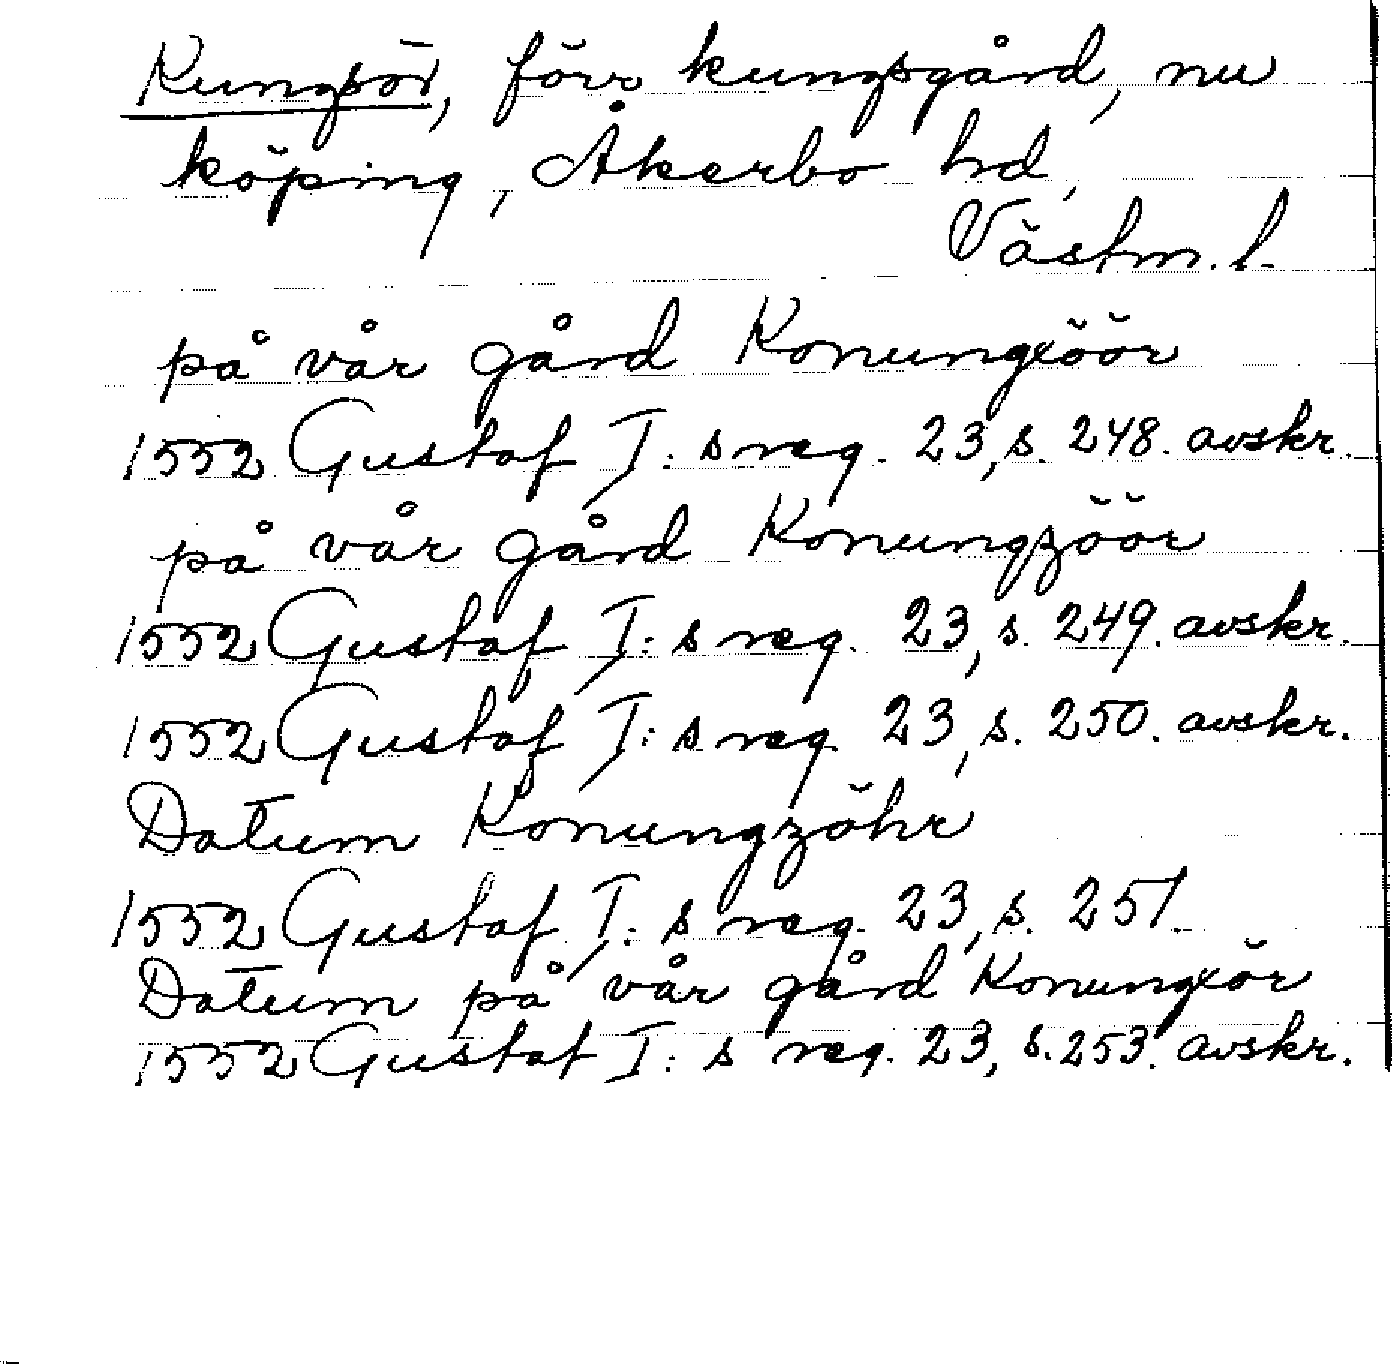 Kungsör, förr kungsgård, nu
köping, Åkerbo hd,
Västm. l.
på vår gård Konungxöör
1552 Gustaf I: s reg. 23, s. 248. avskr.
på vår gård Konungzöör
1552 Gustaf I: s reg. 23, s. 249. avskr.
1552 Gustaf I: s reg. 23, s. 250. avskr.
Datum Konungzöhr
1552 Gustaf I: s reg. 23, s. 251.
Datum på vår gård Konungxör
1552 Gustaf I: s reg. 23, s. 253. avskr.